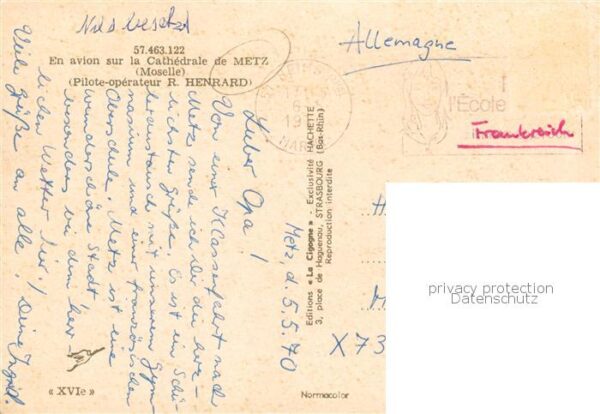 Nils besetzt
57.463.122
En avion sur la Cathédrale de METZ
(Moselle)
(Pilote-opérateur R. HENRARD)
Allemagne
l'École
Frankreich
Metz, d. 5.5.70
Lieber Opa!
Von einer Klassenfahrt nach
Metz sende ich Dir die herz-
lichsten Grüße. Es ist ein Schü-
leraustausch mit unserem Gym-
nasium und einer französischen
Oberschule. Metz ist eine
wunderschöne Stadt!
besonders bei dem herr-
lichen Wetter hier!
Viele Grüße an alle! Deine Ingrid.
Editions « La Cigogne » - Exclusivité HACHETTE
3, place de Haguenau, STRASBOURG (Bas-Rhin)
Reproduction interdite
H
M
X73
« XVIe »
Normacolor
privacy protection
Datenschutz